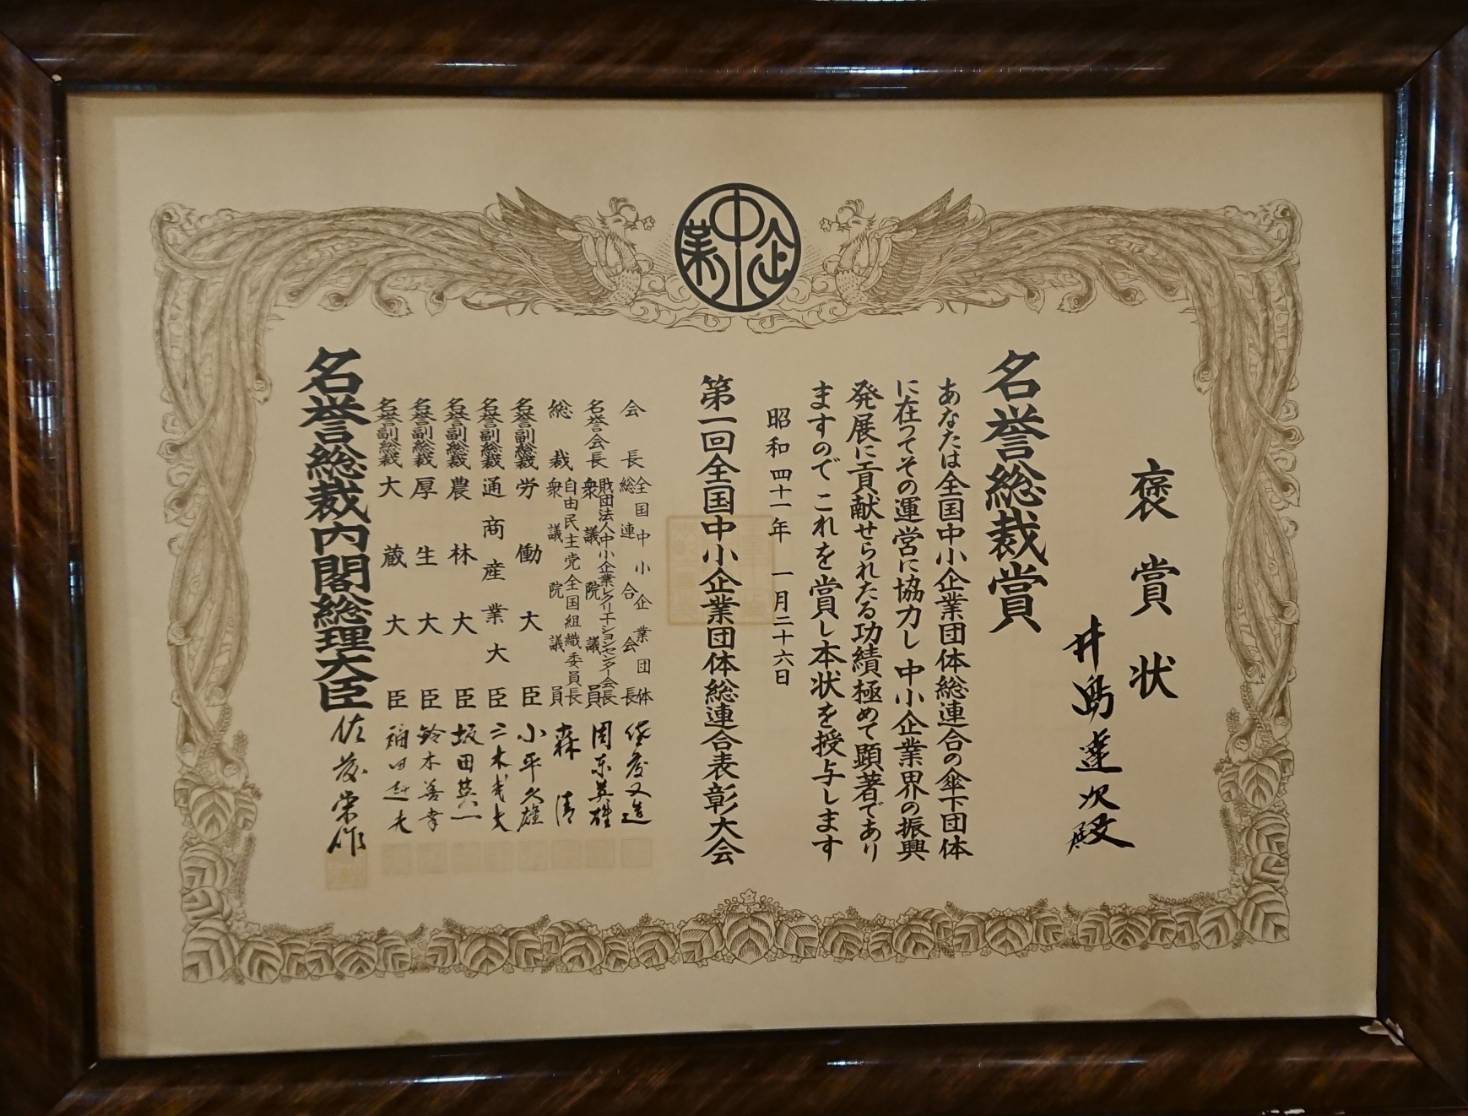 中小企業
褒賞状
井島達次殿
名誉総裁賞
あなたは全国中小企業団体総連合の傘下団体
に在つてその運営に協力し中小企業界の振興
発展に貢献せられたる功績極めて顕著であり
ますのでこれを賞し本状を授与します
昭和四十一年一月二十六日
第一回全国中小企業団体総連合表彰大会
会長 全国中小企業団体総連合会長
名誉会長 財団法人中小企業レクリエーションセンター会長 衆議院議員 周東英雄
総裁 自由民主党全国組織委員長 衆議院議員 森清
名誉副総裁 労働大臣 小平久雄
名誉副総裁 通商産業大臣 三木武夫
名誉副総裁 農林大臣 坂田英一
名誉副総裁 厚生大臣 鈴木善幸
名誉副総裁 大蔵大臣 福田赳夫
名誉総裁内閣総理大臣 佐藤栄作